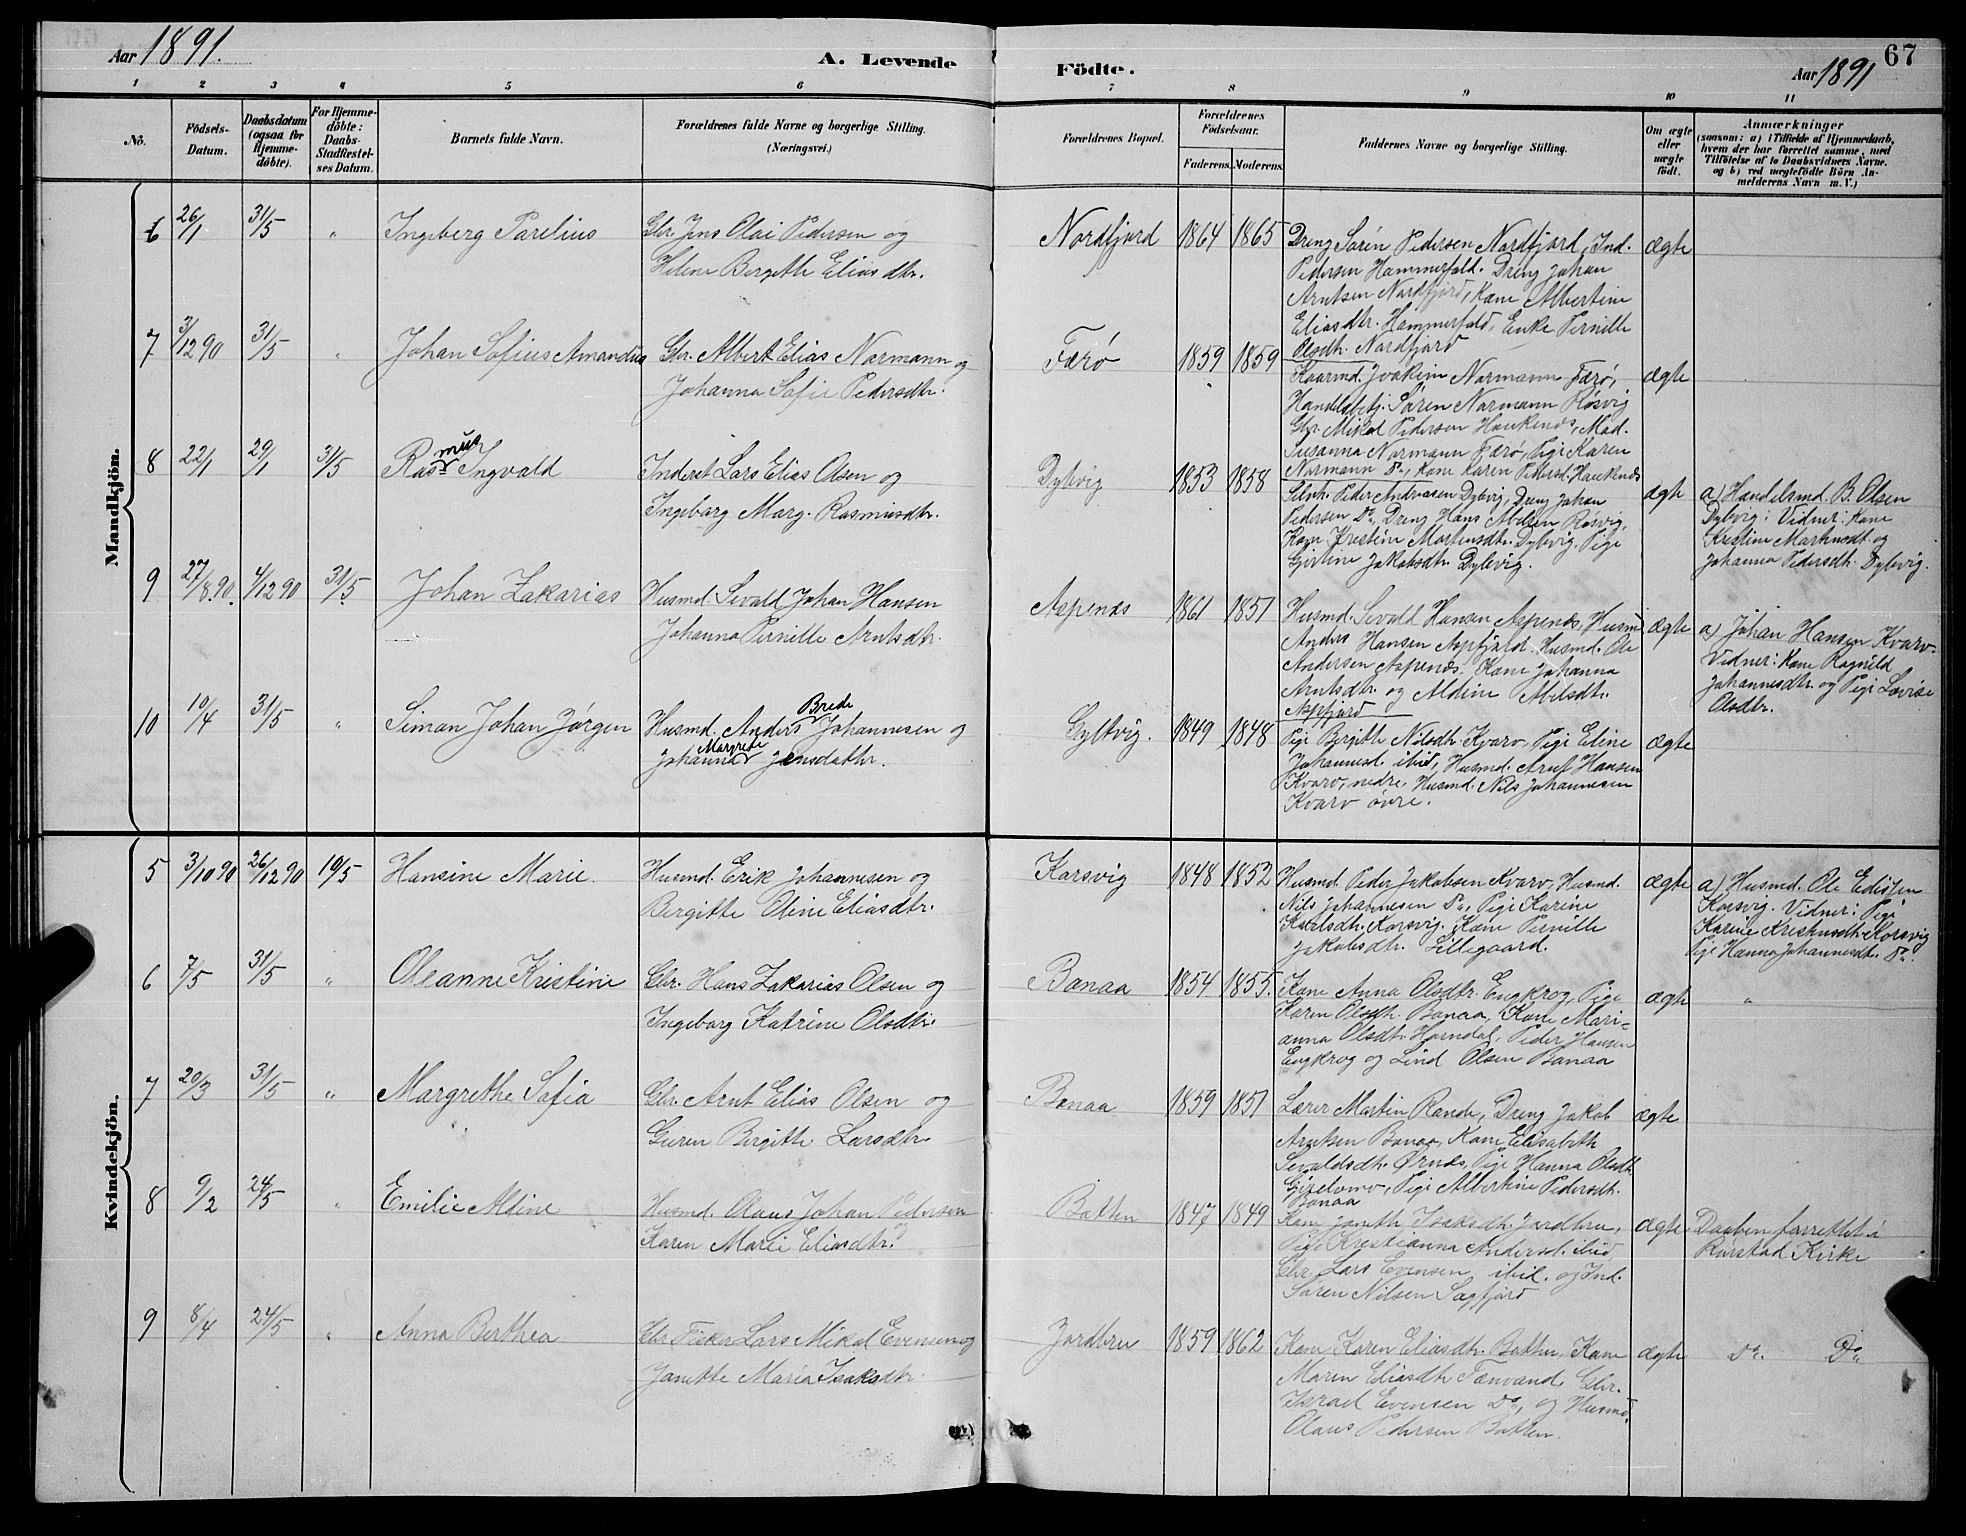 Aar 1891.
A. Levende Födte.
Aar 1891
67
1 2 3 4 5 6 7 8 9 10 11
No.
Födsels-Datum.
Daabsdatum (ogsaa for Hjemme-döbte).
For Hjemme-döbte: Daabs-Stadfæstel-ses Datum.
Barnets fulde Navn.
Forældrenes fulde Navne og borgerlige Stilling.
(Næringsvei.)
Forældrenes Bopæl.
Forældrenes Födselsaar.
Faderens. Moderens.
Faddernes Navne og borgerlige Stilling.
Om ægte eller uægte födt.
Anmærkninger
(saasom: a) i Tilfælde af Hjemmedaab,
hvem der har forrettet samme, med
Tilföielse af to Daabsvidners Navne.
og b) ved uægtefödte Börn An-
melderens Navn m. V.)
Mandkjön.
6 26/1 31/5 " Ingeberg Parelius
Gbr. Jens Olai Pedersen og
Helene Bergitte Eliasdtr.
Nordfjord 1864 1865
Dreng Sörin Pedersen Nordfjord, Ind.
Pedersen Hammerfald. Dreng Johan
Arntsen Nordfjord, Kone Albertine
Eliasdtr. Hammerfald, Enke Pernille
Olsdtr. Nordfjord
ægte
7 3/12 90 31/5 " Johan Sofius Amandus
Gbr. Albert Elias Normann og
Johanna Sofie Pedersdtr.
Færø 1859 1859
Kaarmd. Joakim Normann Færø,
Handelsbetj. Sören Normann Røsvig
Gbr. Mikal Pedersen Haukenes, Mad.
Susanna Normann Færø, Pige Karen
Normann Do, Kone Karen Pedersd. Haukenes
ægte
8 22/1 29/1 31/5 Rasmus Ingvald
Inderst Lars Elias Olsen og
Ingeborg Marg. Rasmusdtr.
Dybvig 1853 1858
Selvh. Peder Andreasen Dybvig, Dreng Johan
Pedersen Do, Dreng Hans Abelsen Røsvig,
Kone Kristine Mortensdtr. Dybvig, Pige
Gjertine Jakobsdtr. Dybvig.
ægte
a) Handelsmd. B. Olsen
Dybvig; Vidner: Kone
Kristine Martinsdt. og
Johanna Pedersdtr. Dybvig.
9 27/8 90. 4/12 90 31/5. Johan Zakarias
Husmd. Sevald Johan Hansen
Johanna Pernille Arntsdtr.
Aspenes 1861 1857
Husmd. Sevald Hansen Aspenes, Husmd
Anders Hansen Aspfjord. Husmd. Ole
Andersen Aspenes. Kone Johanna
Arntsdtr. og Aldine Abelsdtr.
Aspfjord
ægte
a) Johan Hansen Kvarv.
Vidner: Kone Ragnild
Johannesdtr. og Pige Lovise
Olsdtr.
10 10/4 31/5 " Simon Johan Jørgen
Husmd. Anders Brede Johannesen og
Johanna Margrete Jensdatter.
Gyltvig. 1849 1848
Pige Bergitte Nilsdtr. Kvarv, Pige Eline
Johannesd. ibid, Husmd. Arnt Hansen
Kvarv, nedre, Husmd. Nils Johannesen
Kvarv övre.
ægte
Kvindekjön.
5 3/10 90 26/12 90 19/5 Hansine Marie.
Husmd. Erik Johannesen og
Bergitte Oline Eliasdtr.
Korsvig 1848 1852
Husmd. Peder Jakobsen Kvarv, Husmd.
Nils Johannesen Do, Pige Karine
Korsvig. Kone Pernille
Jakobsdtr. Lillegaard.
ægte
a) Husmd. Ole
Korsvig. Vidner: Pige
Karine Kristinsdtr. Korsvig
Pige Hanna Johannesdt. Do.
6 7/5 31/5 " Oleanne Kristine
Gbr. Hans Zakarias Olsen og
Ingeborg Katrine Olsdtr.
Bonaa 1854 1855.
Kone Anna Olsdtr. Engkrog, Pige
Karen Olsdtr. Bonaa, Kone Mari-
anna Olsdtr. Horndal, Peder Hansen
Engkrog og Lind Olsen Bonaa
ægte "
7 20/3 31/5 " Margrethe Sofia
Gbr. Arnt Elias Olsen og
Guren Birgitte Larsdtr.
Bonaa 1859 1857
Lærer Martin Rande, Dreng Jakob
Arntsen Bonaa, Kone Elisabeth
Sevaldsdtr. Ørnes, Pige Hanna Olsdtr.
Pige Albertine Pedersdtr.
Bonaa
ægte
8 9/2 24/5 " Emilie Aldine
Husmd. Olaus Johan Pedersen
og
Karen Marie Eliasdtr.
Botten 1847 1849
Kone Janeth Isaksdtr. Jordbru,
Pige Kristianna Andersd. ibid,
Gbr. Lars Evensen ibid. og Ind.
Sören Nilsen Sagfjord
ægte
Daaben forrettet i
Rørstad Kirke
9 8/4 24/5 " Anna Berthea
Gbr. Fisker Lars Mikal Evensen og
Janette Maria Isaksdtr.
Jordbru 1859 1862
Kone Karen Eliasdtr. Botten, Kone
Maren Eliasdtr. Tennvand, Gbr.
Israel Evensen Do, og Husmd.
Olaus Pedersen Botten.
ægte Do. Do